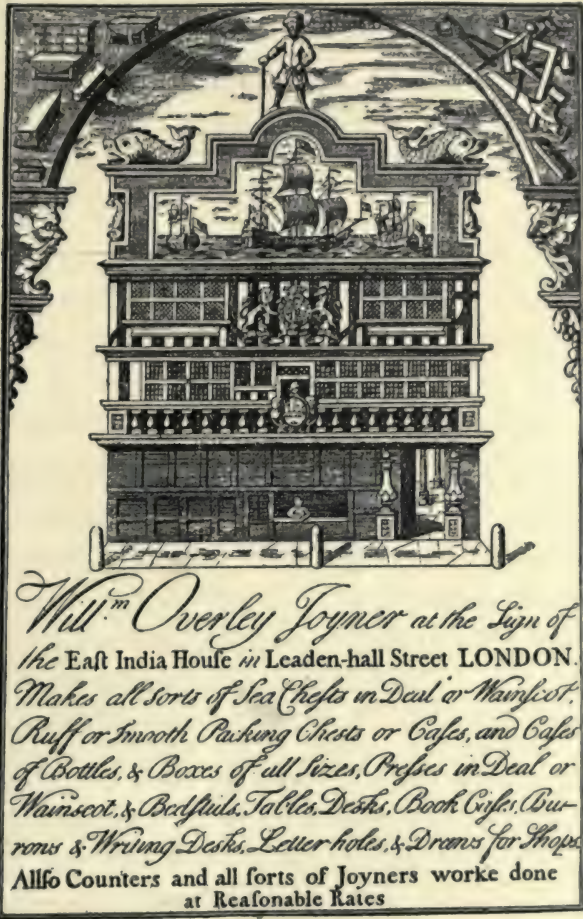 Will.m Overley Joyner at the Sign of
the Eaſt India Houſe in Leaden-hall Street LONDON.
Makes all sorts of Sea Cheſts in Deal or Wainſcot,
Ruff or smooth Packing Chests or Caſes, and Caſes
of Bottles, & Boxes of all Sizes, Preſses in Deal or
Wainscot, & Bedſteds, Tables, Desks, Book Caſes, Bu-
rows & Writing Desks, Letter holes, & Draws for Shops.
Allſo Counters and all ſorts of Joyners worke done
at Reaſonable Rates